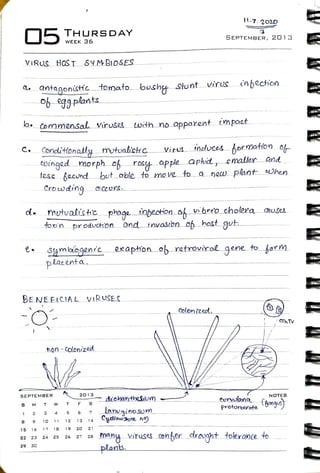 11.7.2020
05 THURSDAY
WEEK 36
SEPTEMBER, 2013
VIRUS HOST SYMBIOSES
a. antagonistic tomato bushy stunt virus infection
of eggplants
b. Commensal viruses with no apparent impact
c. Conditionally mutualistic virus induces formation of
winged morph of rosy apple aphid, smaller and
less fecund but able to move to a new plant when
Crowding occurs.
d. mutualistic phage infection of vibrio cholera causes
toxin production and invasion of host gut.
e. symbiogenic exaption of retroviral gene to form
placenta.
BENEFICIAL VIRUSES
Colonized.
CThTV
non-colonized
SEPTEMBER 2013
S M T W T F S
1 2 3 4 5 6 7
8 9 10 11 12 13 14
15 16 17 18 19 20 21
22 23 24 25 26 27 28
29 30
dichanthelium
lanuginosum
NOTES
curvularia (fungus)
protuberata
many viruses confer drought tolerance to
plants.